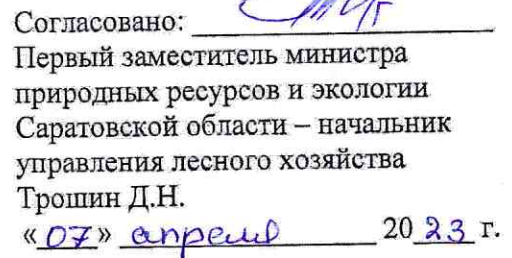 Согласовано:
Первый заместитель министра
природных ресурсов и экологии
Саратовской области – начальник
управления лесного хозяйства
Трошин Д.Н.
«07» апреля 2023 г.